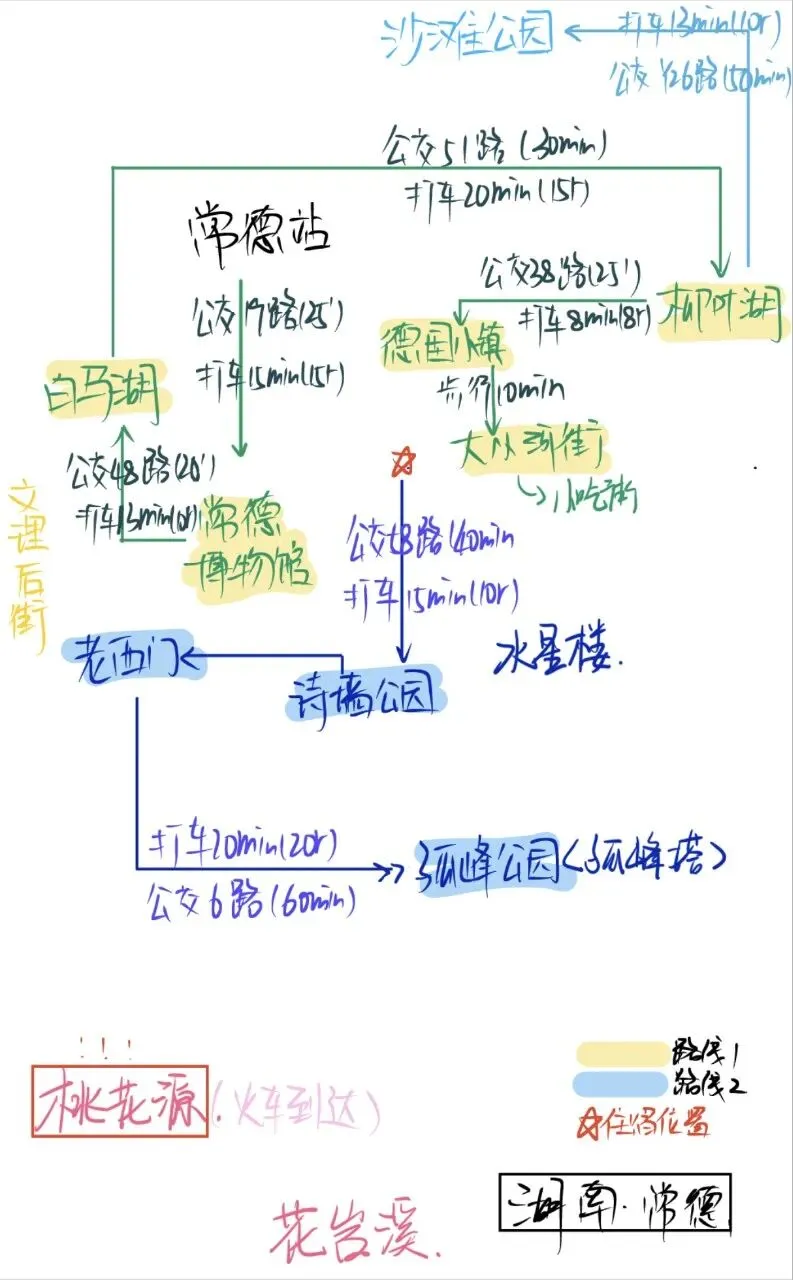 沙滩公园
打车13min(10r)
公交126路(50min)
公交51路(30min)
打车20min(15r)
常德站
公交17路(25')
打车15min(15r)
公交38路(25')
打车8min(8r)
柳叶湖
德国小镇
步行10min
大小河街
小吃街
白马湖
公交48路(20')
打车13min
常德
博物馆
文理后街
打车15min(10r)
水星楼.
老西门
诗墙公园
打车20min(20r)
公交6路(60min)
孤峰公园<孤峰塔>
!!!
桃花源(火车到达)
路线1
路线2
☆住宿位置
湖南·常德
花岩溪.